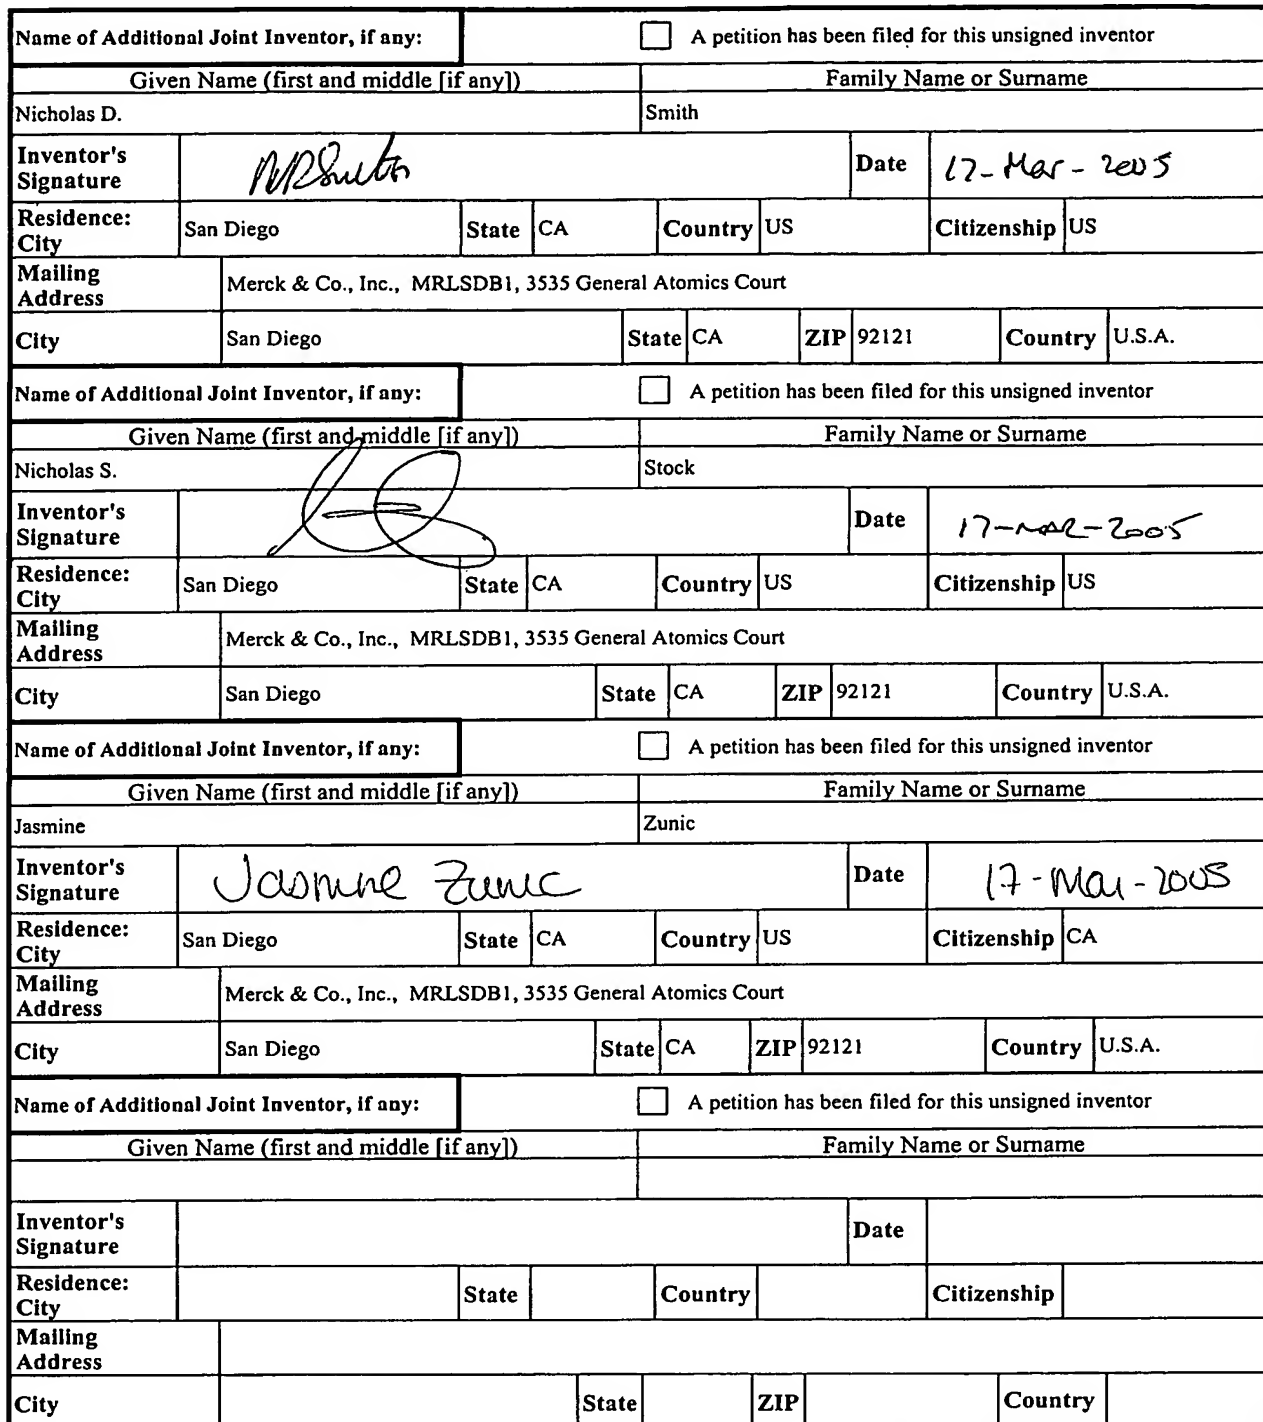 Name of Additional Joint Inventor, if any: A petition has been filed for this unsigned inventor
Given Name (first and middle [if any]) Family Name or Surname
Nicholas D. Smith
Inventor's Signature NDSmith Date 17-Mar-2005
Residence: City San Diego State CA Country US Citizenship US
Mailing Address Merck & Co., Inc., MRLSDB1, 3535 General Atomics Court
City San Diego State CA ZIP 92121 Country U.S.A.
Name of Additional Joint Inventor, if any: A petition has been filed for this unsigned inventor
Given Name (first and middle [if any]) Family Name or Surname
Nicholas S. Stock
Inventor's Signature Date 17-MAR-2005
Residence: City San Diego State CA Country US Citizenship US
Mailing Address Merck & Co., Inc., MRLSDB1, 3535 General Atomics Court
City San Diego State CA ZIP 92121 Country U.S.A.
Name of Additional Joint Inventor, if any: A petition has been filed for this unsigned inventor
Given Name (first and middle [if any]) Family Name or Surname
Jasmine Zunic
Inventor's Signature Jasmine Zunic Date 17-Mar-2005
Residence: City San Diego State CA Country US Citizenship CA
Mailing Address Merck & Co., Inc., MRLSDB1, 3535 General Atomics Court
City San Diego State CA ZIP 92121 Country U.S.A.
Name of Additional Joint Inventor, if any: A petition has been filed for this unsigned inventor
Given Name (first and middle [if any]) Family Name or Surname
Inventor's Signature Date
Residence: City State Country Citizenship
Mailing Address
City State ZIP Country